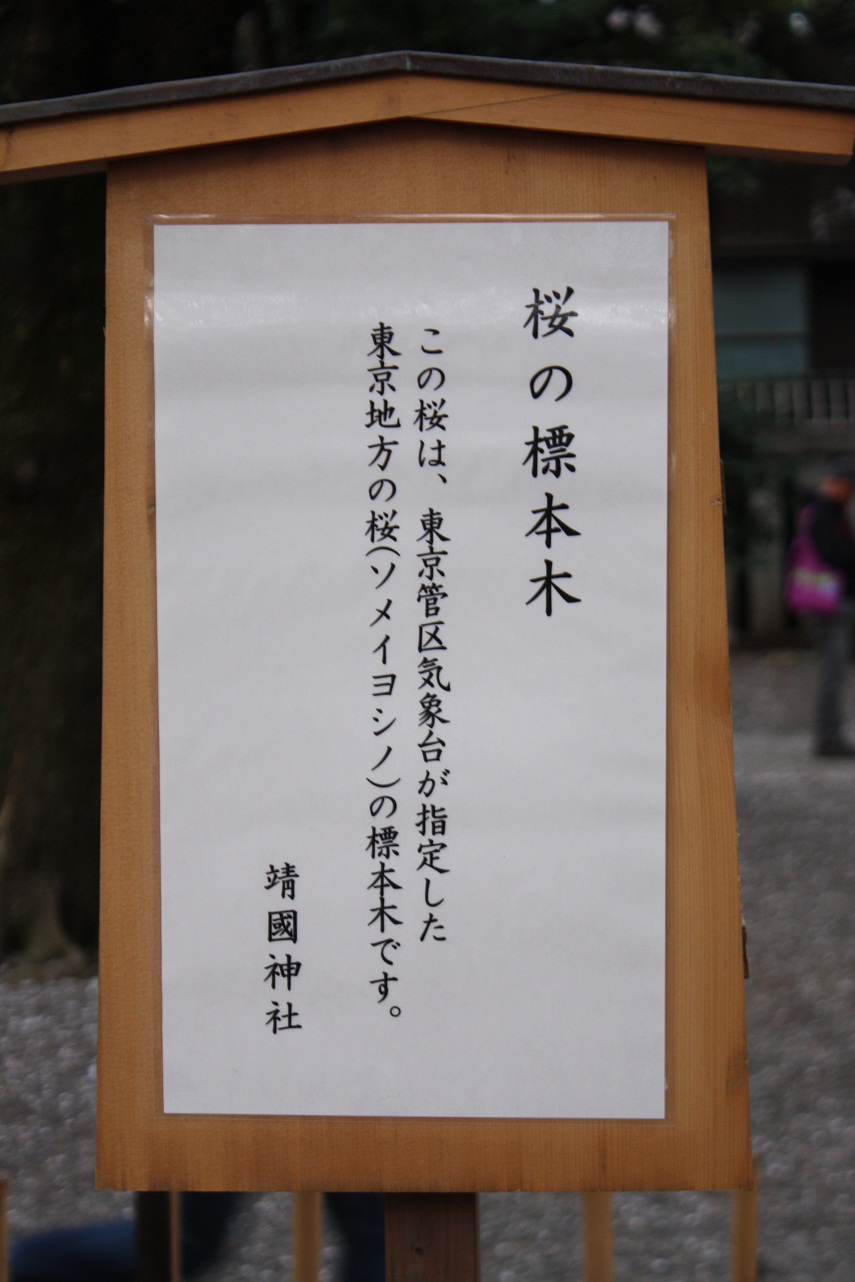 桜の標本木
この桜は、東京管区気象台が指定した
東京地方の桜(ソメイヨシノ)の標本木です。
靖國神社